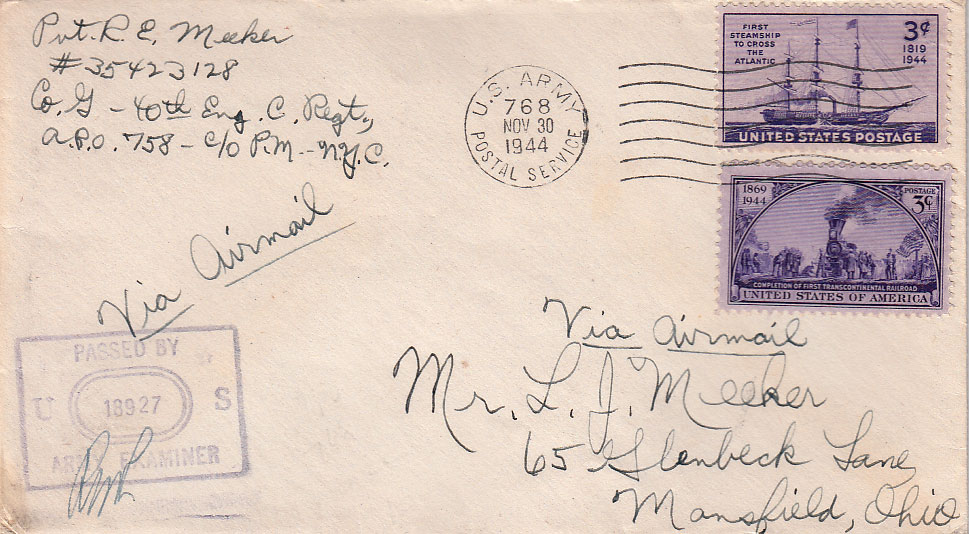 Pvt. R. E. Meeker
#35423128
Co. G - 40th Eng. C. Regt.,
A.P.O. 758 - c/o P.M. - N.Y.C.
U.S. ARMY
768
NOV 30
1944
POSTAL SERVICE
FIRST
STEAMSHIP
TO CROSS
THE
ATLANTIC
3¢
1819
1944
UNITED STATES POSTAGE
1869
1944
POSTAGE
3¢
COMPLETION OF FIRST TRANSCONTINENTAL RAILROAD
UNITED STATES OF AMERICA
Via Airmail
Via Airmail
Mr. L. J. Meeker
65 Glenbeck Lane,
Mansfield, Ohio
PASSED BY
U 18927 S
ARMY EXAMINER